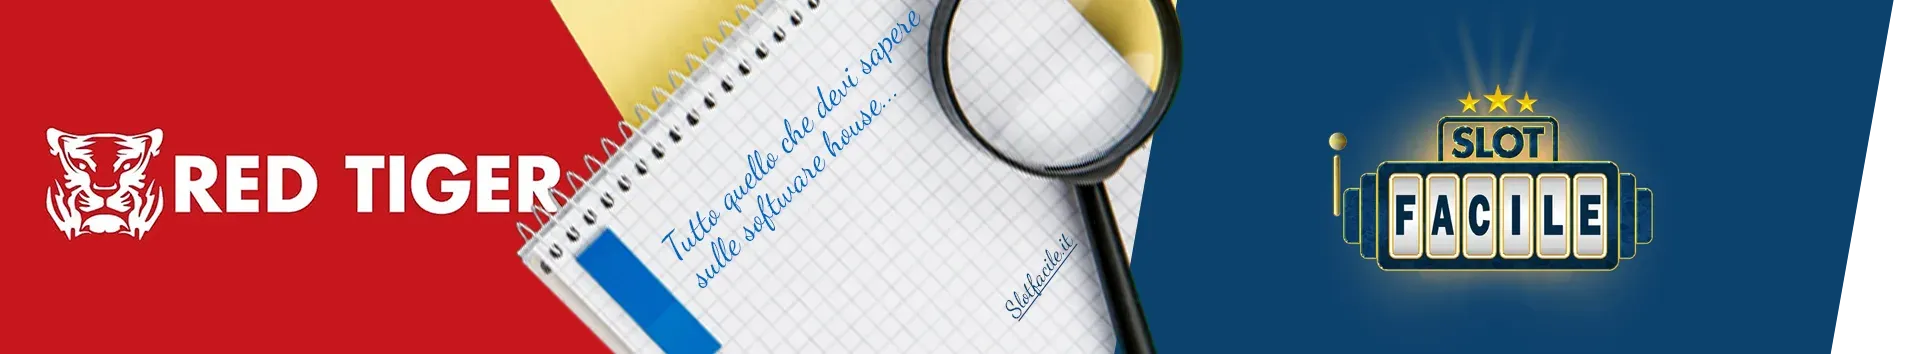 RED TIGER
Tutto quello che devi sapere
sulle software house...
Slotfacile.it
SLOT
FACILE